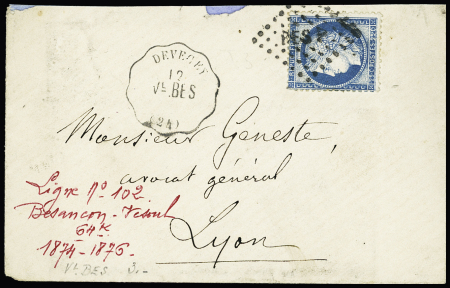 DEVECEY
12
Vˢ.BES
(24)
BES
POSTES
Monsieur Géneste,
avocat général
Lyon
Ligne Nº 102
Besançon-Vesoul
64ᴷ
1874-1876-
Vˢ BES 3.-